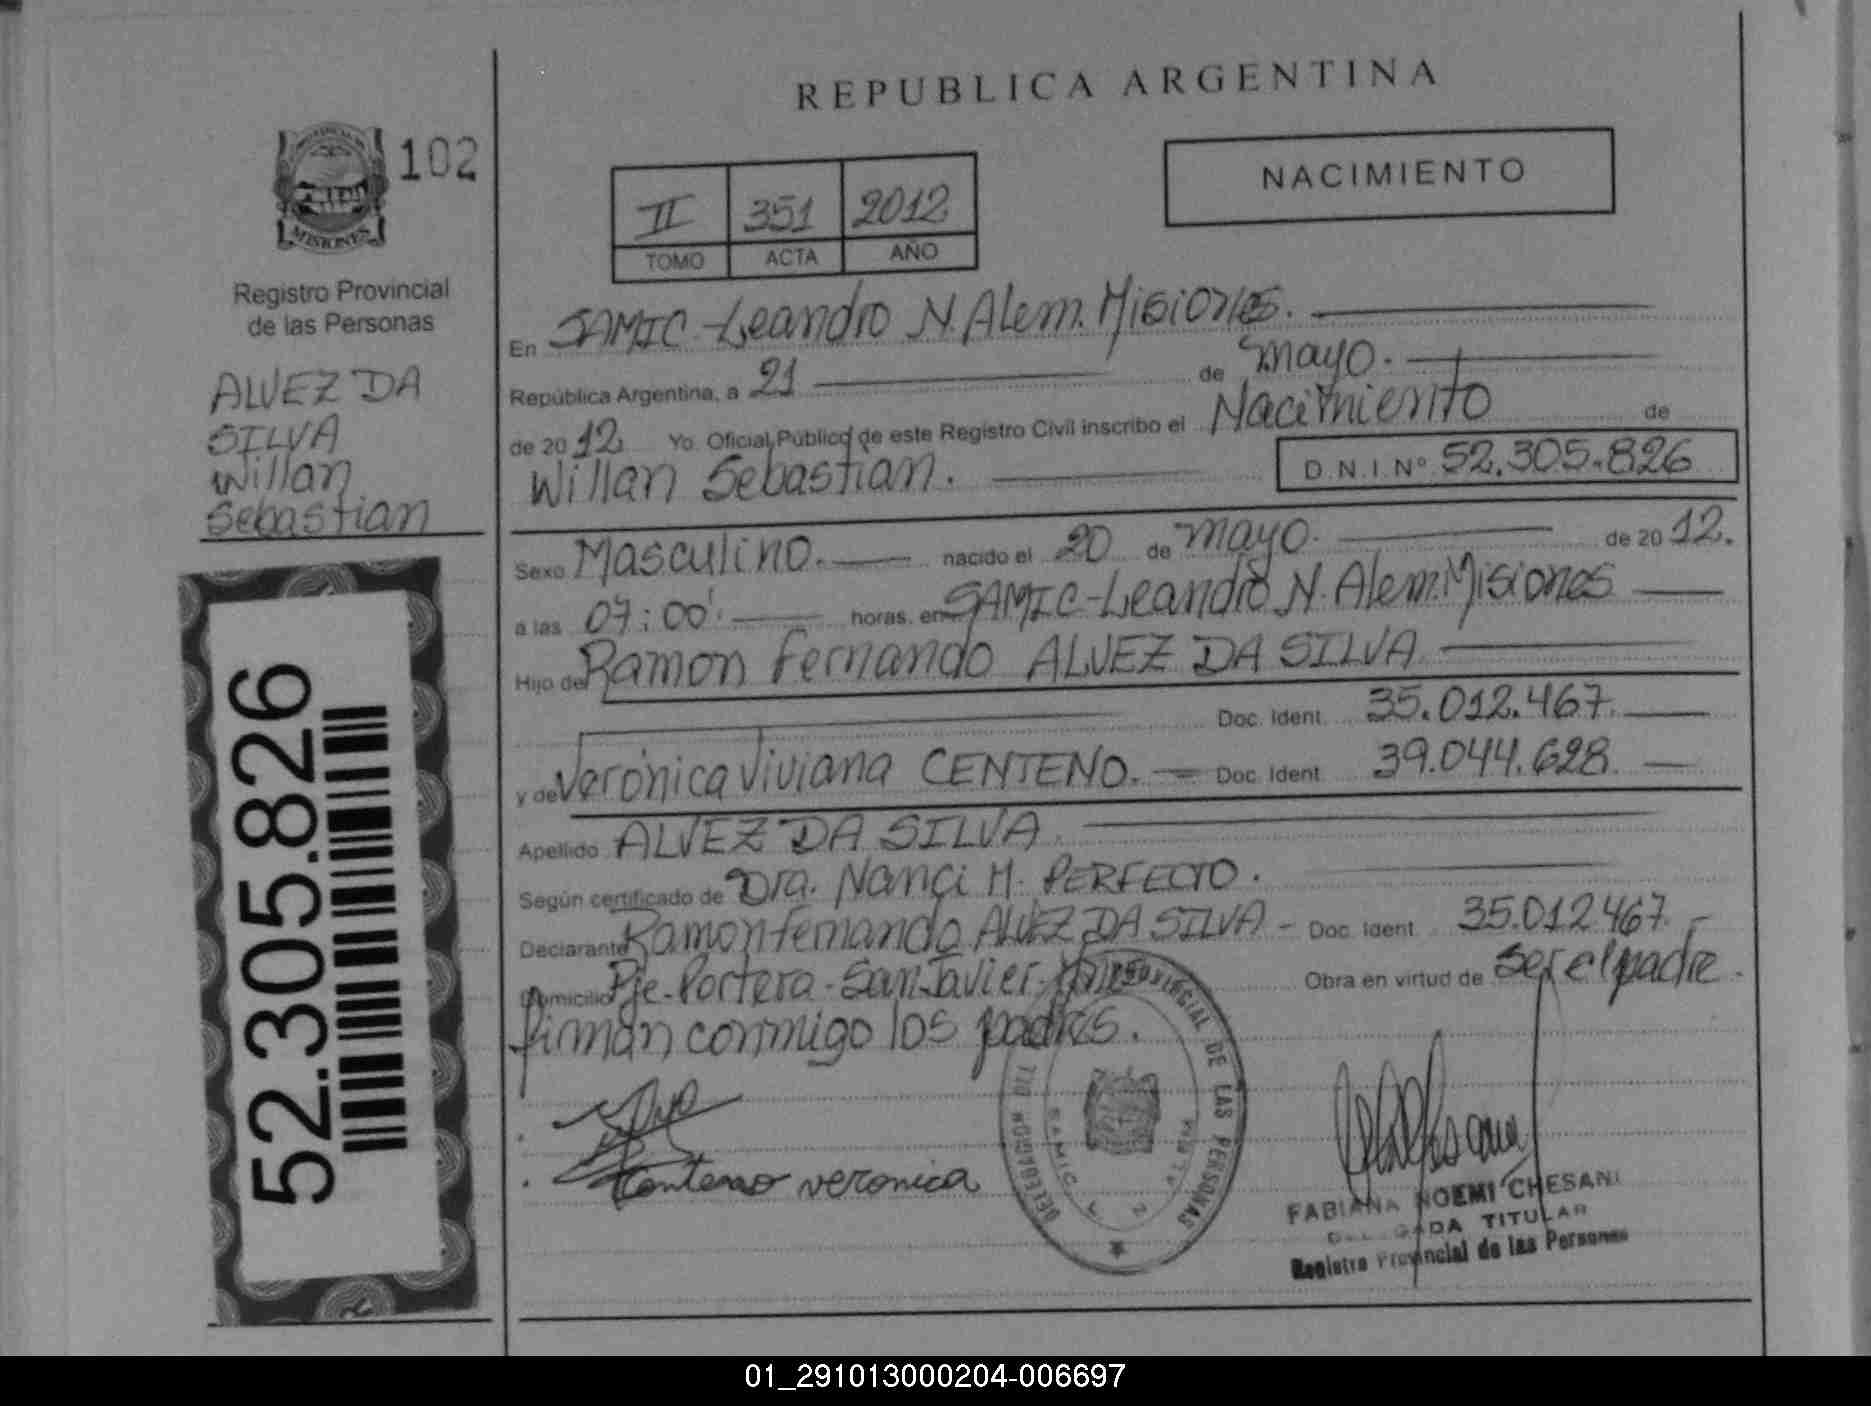 REPUBLICA ARGENTINA
102
MISIONES
Registro Provincial
de las Personas
ALVEZ DA
SILVA
Willan
Sebastian
52.305.826
II 351 2012
TOMO ACTA AÑO
NACIMIENTO
En SAMIC-Leandro N. Alem. Misiones.
República Argentina, a 21 de mayo.
de 2012 Yo. Oficial Público de este Registro Civil inscribo el Nacimiento de
Willan Sebastian. D.N.I.Nº 52.305.826
Sexo Masculino. nacido el 20 de mayo. de 2012.
a las 07:00' horas. en SAMIC-Leandro N. Alem. Misiones
Hijo de Ramon Fernando ALVEZ DA SILVA
Doc. Ident. 35.012.467.
y de Verónica Viviana CENTENO. Doc. Ident. 39.044.628.
Apellido ALVEZ DA SILVA.
Según certificado de Dra. Nanci M. PERFECTO.
Declarante Ramon Fernando ALVEZ DA SILVA - Doc. Ident. 35.012.467.
Domicilio Pje. Portera - San Javier. Obra en virtud de ser el padre.
firman conmigo los padres.
Centeno veronica
PROVINCIAL DE LAS PERSONAS
SAMIC L. N. ALEM
FABIANA NOEMI CHESANI
TITULAR
Registro Provincial de las Personas
01_291013000204-006697